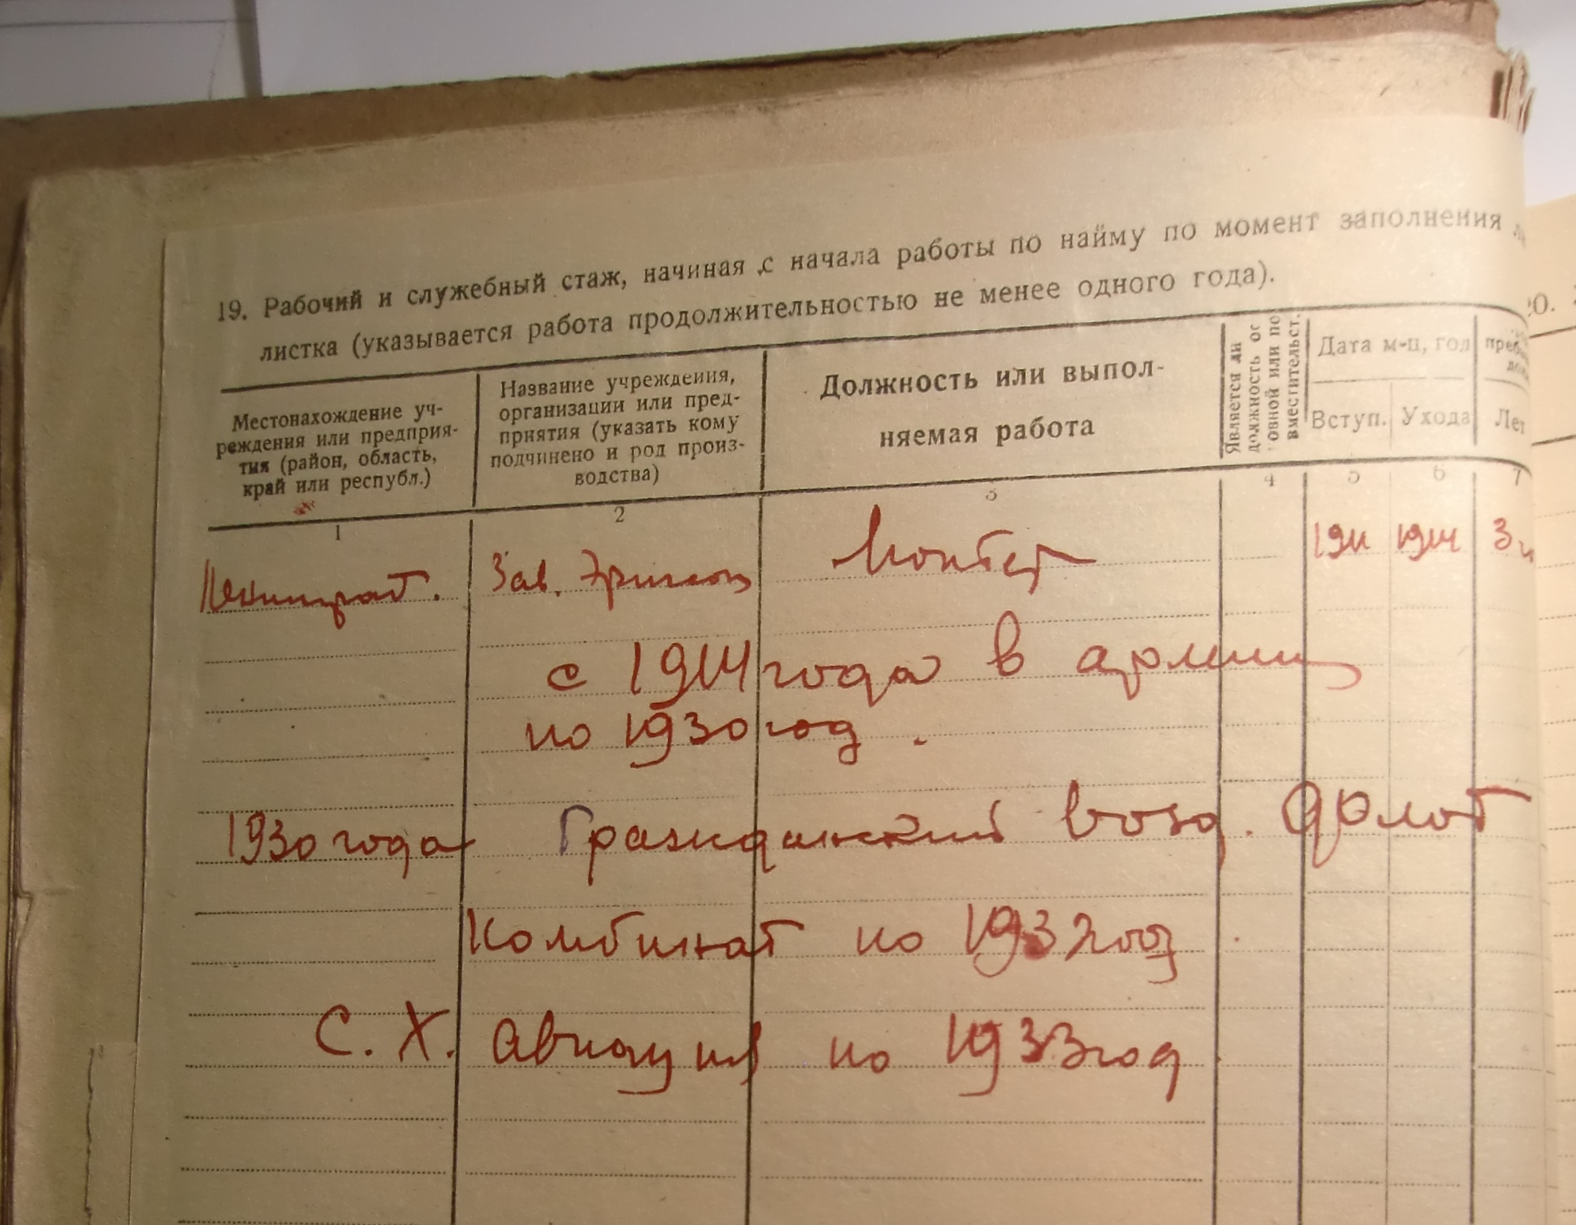 19. Рабочий и служебный стаж, начиная с начала работы по найму по момент заполнения
листка (указывается работа продолжительностью не менее одного года).
Местонахождение уч-
реждения или предприя-
тия (район, область,
край или республ.)
Название учреждения,
организации или пред-
приятия (указать кому
подчинено и род произ-
водства)
Должность или выпол-
няемая работа
Является ли
должность ос
овной или по
вместительст.
Дата м-ц, год
Вступ.
Ухода
Лет
1
2
3
4
5
6
7
Ленинград. Зав. Эриксон Монтер 1911 1914 3
с 1914 года в армии
по 1930 год.
1930 года Гражданский возд. флот
Комбинат по 1932 год
С. Х. Авиация по 1933 год